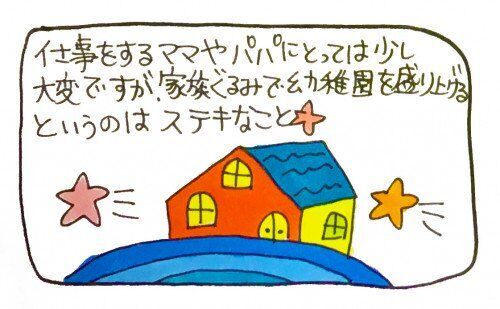 仕事をするママやパパにとっては少し
大変ですが、家族ぐるみで幼稚園を盛り上げる
というのは ステキなこと